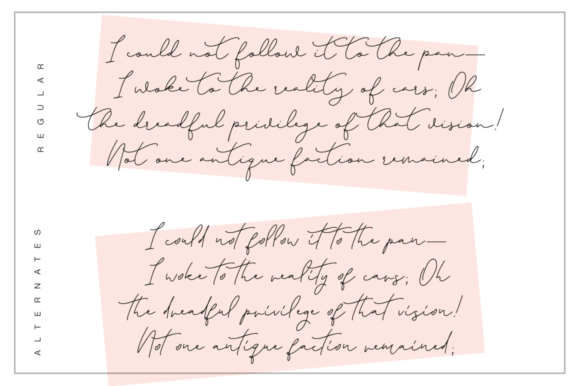 REGULAR
I could not follow it to the pan—
I woke to the reality of cars; Oh
the dreadful privilege of that vision!
Not one antique faction remained;
ALTERNATES
I could not follow it to the pan—
I woke to the reality of cars; Oh
the dreadful privilege of that vision!
Not one antique faction remained;